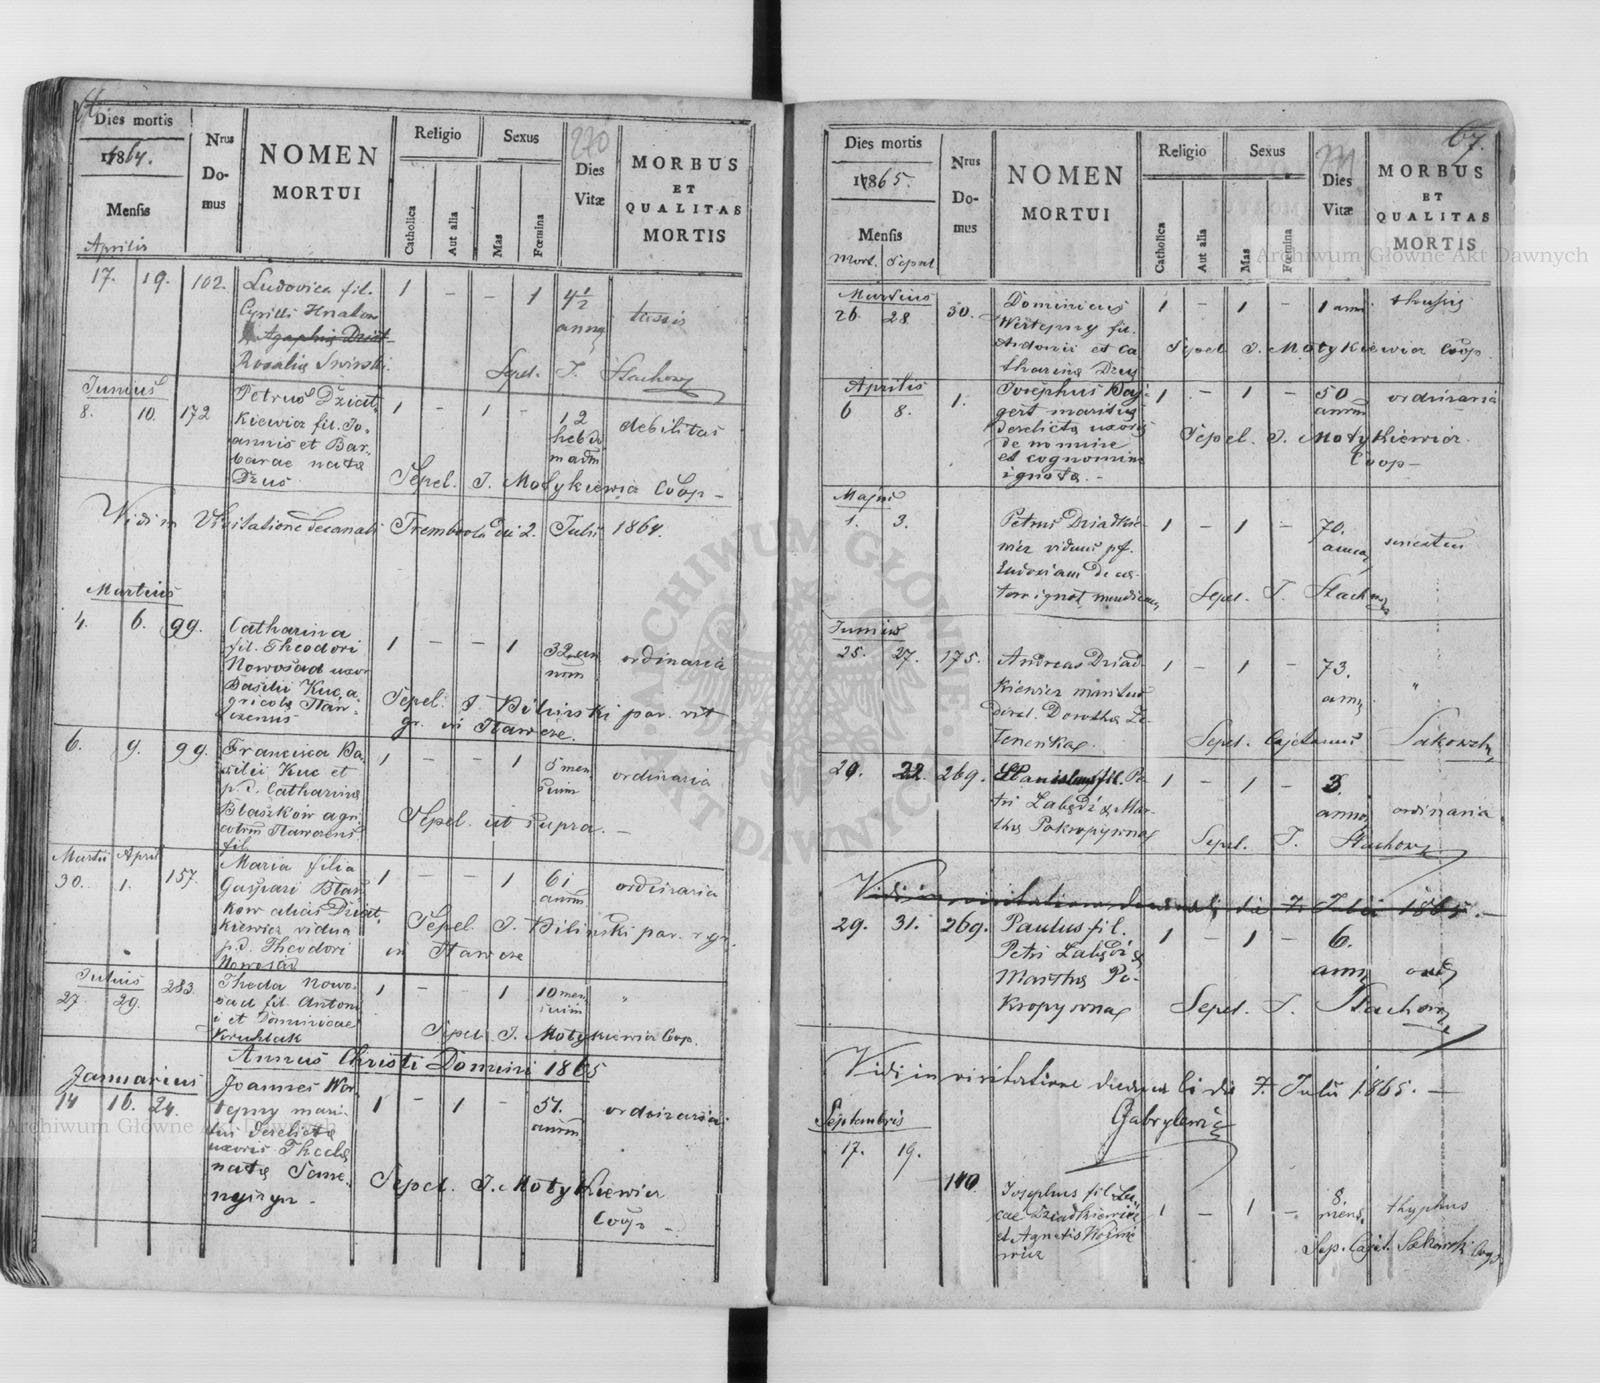 Dies mortis
1864.
Mensis
Aprilis
Nrus
Do-
mus
NOMEN
MORTUI
Religio
Catholica
Aut alia
Sexus
Mas
Fœmina
270
Dies
Vitæ
MORBUS
ET
QUALITAS
MORTIS
17. 19. 102. Ludovica fil. 1 - - 1 4 1/2
Cyrilli Hnatow
annor
tussis
Rosalia Swirski
Sepel. J. Stachow
Junius
8. 10. 172 Petrus Dziat-
kiewicz fil. Jo-
annis et Bar-
barae nata
Dzus
1 - 1 -
12
hebdo
madm
debilitas
Sepel. J. Motykiewicz Coop -
Vidi in Visitatione decanali Trembowla die 2. Julii 1864.
Martius
4. 6. 99. Catharina
fil. Theodori
Nowosad uxor
Basilii Kuc a
gricola Naw-
1 - - 1
32 an
norm
ordinaria
Sepel. J. Bilinski par. rit
gr. in Nawcze.
6. 9. 99. Francisca Ba-
silii Kuc et
p. d. Catharina
Blaszkow agri
fil.
1 - - 1
5 men
sium
ordinaria
Sepel. ut supra. -
Martii April
30. 1. 157. Maria filia
Gaspari Blas
kow alias Dziat-
kiewicz vidua
p. d. Theodori
Nowosad
1 - - 1
61
annm
ordinaria
Sepel. J. Bilinski par. r. gr.
in Nawcze
Julius
27. 29. 283. Theda Nowo-
sad fil. Antoni
i et Dominicae
Kruhlak
1 - - 1
10 men
sium
"
Sepel. J. Motykiewicz Coop.
Annus Christi Domini 1865
Januarius
14 16. 24. Joannes Wer
tepny mari-
tus derelicta
uxoris Thecla
nata Seme-
1 - 1 -
57.
annm
ordinaria
Sepel. J. Motykiewicz
Coop -
67.
Dies mortis
1865.
Mensis
Mort. Sepul
Nrus
Do-
mus
NOMEN
MORTUI
Religio
Catholica
Aut alia
Sexus
Mas
Fœmina
271
Dies
Vitæ
MORBUS
ET
QUALITAS
MORTIS
Archiwum Główne Akt Dawnych
Martius
26 28 30. Dominicus
Wertepny fil.
Antonii et Ca
tharina Dzus
1 - 1 -
1 anni
Sepel J. Motykiewicz Coop.
Aprilis
6 8. 1. Josephus Baj
gert maritus
derelicta uxoris
de nomine
et cognomine
ignota. -
1 - 1 -
50
annm
ordinaria
Sepel. J. Motykiewicz
Coop -
Majus
1. 3. Petrus Dziadkie-
wicz viduus p.
1 - 1 -
70.
annor
Sepel. J. Stachow
Junius
25. 27. 175. Andreas Dziad-
kiewicz maritus
derel. Dorothea Ze-
lenenka.
1 - 1 -
73.
ann
"
Sepel. Cajetanus Sakowski
29. 22. 269. Stanislaus fil. Pe-
tri Labędź & Mar-
tha Pokropywna
1 - 1 -
3.
anno
ordinaria
Sepel. J. Stachow
Vidi in visitatione decanali die 7. Julii 1865. -
29. 31. 269. Paulus fil.
Petri Labędź &
Martha Po-
kropywna
1 - 1 -
6.
ann
ord
Sepel. J. Stachow
Vidi in visitatione decanali die 7. Julii 1865. -
Gabrylewicz
Septembris
17. 19.
140 Josephus fil. Lu-
cae Dziadkiewicz
et Agnetis
wicz
1 - 1 -
8.
mens.
thyphus
Sep. Cajet. Sakowski Coop.
Archiwum Główne Akt Dawnych
ARCHIWUM GŁÓWNE AKT DAWNYCH